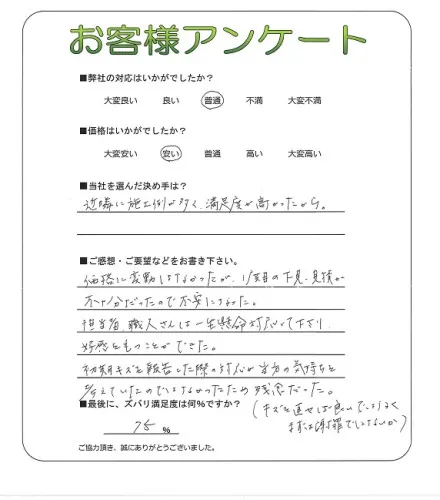 お客様アンケート
■弊社の対応はいかがでしたか？
大変良い 良い 普通 不満 大変不満
■価格はいかがでしたか？
大変安い 安い 普通 高い 大変高い
■当社を選んだ決め手は？
近隣に施工例が多く、満足度が高かったから。
■ご感想・ご要望などをお書き下さい。
価格に変動はなかったが、1度目の下見、見積が
不十分だったので不安になった。
担当者、職人さんは一生懸命対応して下さり
好感をもつことができた。
初期キズを報告した際の対応が当方の気持ちを
考えていたのではなかったため残念だった。
■最後に、ズバリ満足度は何%ですか？
(キズを直せば良いではなく
まずは謝罪ではないか)
75 %
ご協力頂き、誠にありがとうございました。